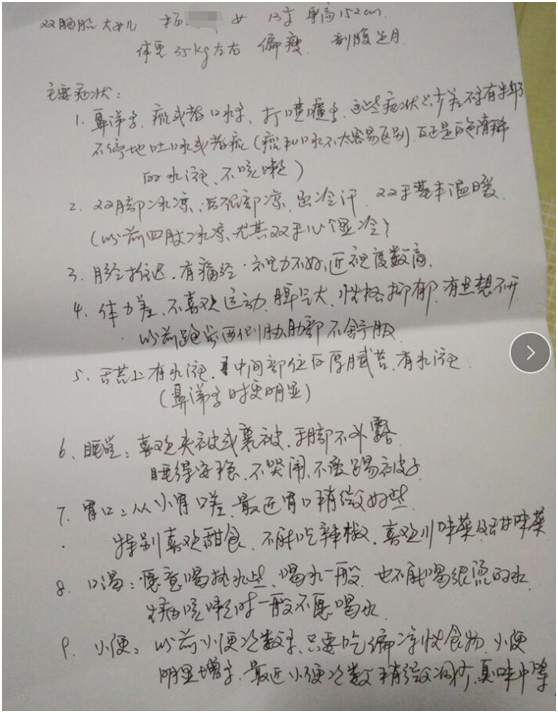 双胞胎大女儿 杨 女 13岁 身高152cm
体重35kg左右 偏瘦 剖腹 足月
主要症状:
1、鼻涕多、痰或者口水多,打喷嚏多,这些症状
不停地吐口水或者痰(痰和口水不太容易区别),白色清稀
的水泡,不咳嗽)
2、双脚冰凉、 部凉、出冷汗,双手基本温暖
(以前四肢冰凉,尤其双手心个显冷)
3、月经推迟,有痛经、视力不好,近视度数高
4、体力差,不喜欢运动,脾气大,性格抑郁,有些想不开
以前跑步两侧肋肋部不舒服
5、舌苔上有水泡,中间部位白厚腻苔,有水泡
(鼻涕多时更明显)
6、睡觉:喜欢夹被或裹被,手脚不外露
睡得安稳,不哭闹,不磨 踢被子
7、胃口:从小胃口差,最近胃口稍微好些
特别喜欢甜食,不能吃辣椒,喜欢 味菜及 味菜
8、口渴:愿意喝热水些,喝水一般,也不能喝很烫的水
生病咳嗽时一般不愿喝水
9、小便:以前小便次数多,只要吃偏凉性食物,小便
明显增多,最近小便次数稍微减少,臭味中等